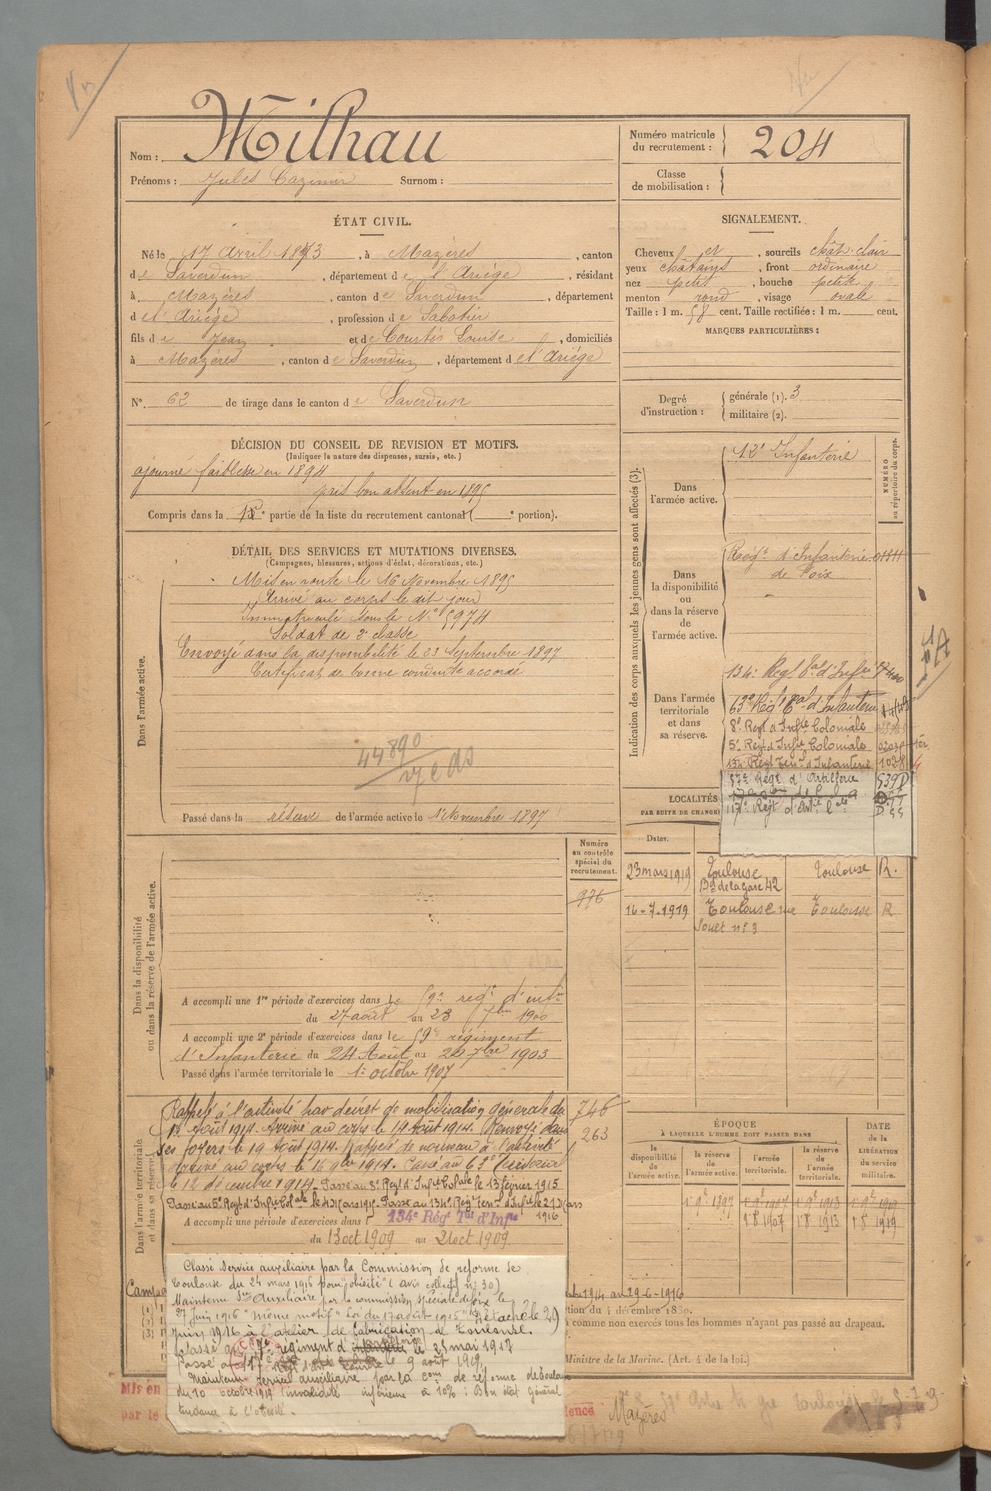 Nom : Milhau
Prénoms : Jules Cazimir Surnom :
Numéro matricule du recrutement : 204
Classe de mobilisation :
ÉTAT CIVIL.
Né le 17 Avril 1873, à Mazères, canton
de Saverdun, département de l'Ariège, résidant
à Mazères, canton de Saverdun, département
de l'Ariège, profession de Sabotier
fils de Jean et de Courtès Louise, domiciliés
à Mazères, canton de Saverdun, département de l'Ariège
N° 62 de tirage dans le canton de Saverdun
SIGNALEMENT.
Cheveux et, sourcils chât. clair
yeux châtains, front ordinaire
nez petit, bouche petite
menton rond, visage ovale
Taille : 1 m. 58 cent. Taille rectifiée : 1 m. cent.
MARQUES PARTICULIÈRES :
Degré d'instruction : générale (1). 3
militaire (2).
DÉCISION DU CONSEIL DE REVISION ET MOTIFS.
(Indiquer la nature des dispenses, sursis, etc.)
ajourné faiblesse en 1894
pris bon absent en 1895
Compris dans la partie de la liste du recrutement cantonal ( ° portion).
DÉTAIL DES SERVICES ET MUTATIONS DIVERSES.
(Campagnes, blessures, actions d'éclat, décorations, etc.)
Dans l'armée active.
Mis en route le 16 Novembre 1895
Arrivé au corps le dit jour
Immatriculé sous le N° 5974
Soldat de 2e classe
Envoyé dans la disponibilité le 23 Septembre 1897
Certificat de bonne conduite accordé
44890
Passé dans la réserve de l'armée active le 1 Novembre 1897
Indication des corps auxquels les jeunes gens sont affectés (3).
NUMÉRO au répertoire du corps.
Dans l'armée active. 12e Infanterie
Dans la disponibilité ou dans la réserve de l'armée active.
Régt d'Infanterie
de Foix
Dans l'armée territoriale et dans sa réserve.
134e Régt Tal d'Infie
63e Régt Tal d'Infanterie
8e Régt d'Infie Coloniale
5e Régt d'Infie Coloniale
134 Régt Terl d'Infanterie
57e Régt d'Artillerie
117e Régt d'Artie
LOCALITÉS
PAR SUITE DE CHANGE
Dates.
23 mars 1919 Toulouse Bd de la gare 42 Toulouse R.
16-7-1919 Toulouse rue n° 3 Toulouse R
Numéro au contrôle spécial du recrutement.
976
Dans la disponibilité ou dans la réserve de l'armée active.
A accompli une 1re période d'exercices dans le 59e régt d'infie
du 27 août au 23 7bre 1900
A accompli une 2e période d'exercices dans le 59e régiment
d'Infanterie du 24 Août au 20 7bre 1903
Passé dans l'armée territoriale le 1 octobre 1907
Dans l'armée territoriale et dans sa réserve
Rappelé à l'activité par décret de mobilisation générale du
1er Août 1914. Arrivé au corps le 14 août 1914. Renvoyé dans
ses foyers le 19 Août 1914. Rappelé de nouveau à l'activité
Arrivé au corps le 16 9bre 1914. Passé au 63e
le 12 décembre 1914. Passé au 8e Régt d'Infie Colale le 13 février 1915
Passé au 5e Régt d'Infie Colale le Passé au 134e Régt Terl d'Infie le 21 Mars 1916
746
263
A accompli une période d'exercices dans l 134e Rég. Tal d'Infie
du 13 oct 1909 au 21 oct 1909
ÉPOQUE
À LAQUELLE L'HOMME DOIT PASSER DANS
la disponibilité de l'armée active.
la réserve de l'armée active.
l'armée territoriale.
la réserve de l'armée territoriale.
DATE de la LIBÉRATION du service militaire.
Classé service auxiliaire par la Commission de réforme de
Toulouse du 24 mars 1916 pour "obésité" (avis collectif n° 30)
Maintenu Sce Auxiliaire par la commission spéciale de Foix le
27 Juin 1916 "même motif" Loi du 17 août 1915. Détaché le 29
Juin 1916 à l'atelier de fabrication de Toulouse.
Passé au régiment d' le 25 mai 1917
Passé au 117e le 9 août 1919
Maintenu service auxiliaire par la Com de réforme de Toulouse
du 10 octobre 1919 invalidité inférieure à 10% : Bon état général
tendance à l'obésité.
Camp
1914 au 29-6-1916
tion du 4 décembre 1830.
comme non exercés tous les hommes n'ayant pas passé au drapeau.
Ministre de la Marine. (Art. 4 de la loi.)
Mis en
par le
Mazères